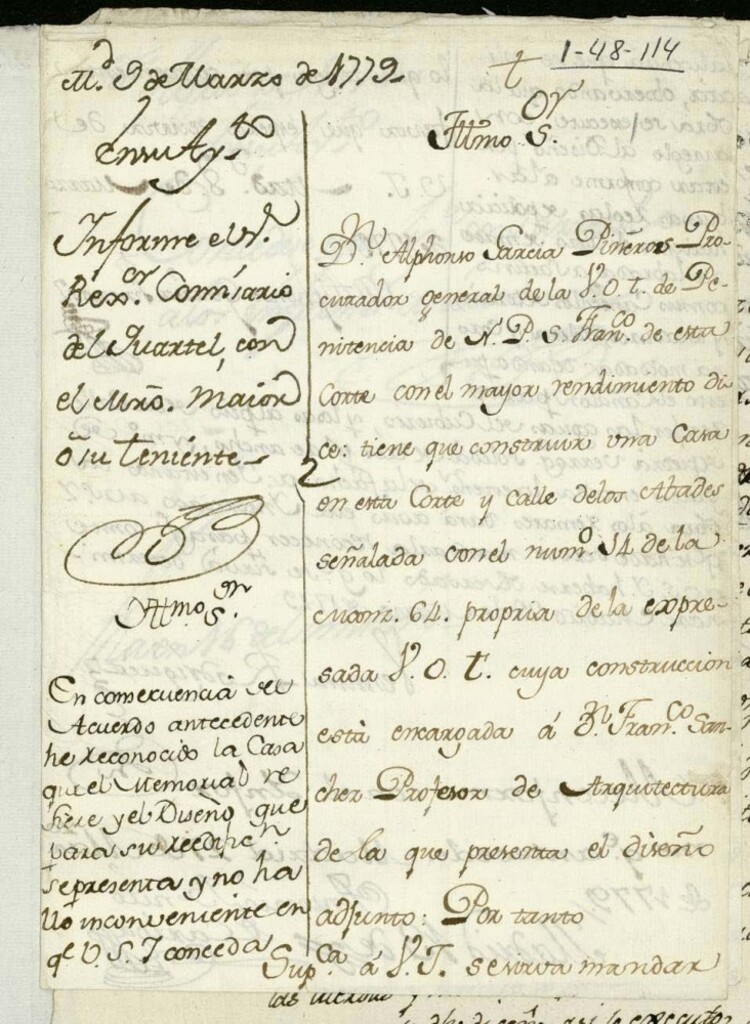 M.d 9 de Marzo de 1779
1-48-114
En su Ay.to
Informe el Sr.
Rexor. Comisario
del Quartel, con
el Mro. maior
ô su teniente
Ittmo Sr.
En consecuencia del
Acuerdo antecedente
he reconocido la Casa
que el Memorial re
fiere y el Diseño que
para su reedificn.
se presenta y no ha
llo inconveniente en
qe V. S. I conceda
Ittmo Sor.
Dn. Alphonso Garcia Piñeros Pro-
curador general de la V. O. t. de Pe-
nitencia de N. P. S. Franco. de esta
Corte con el mayor rendimiento di-
ce: tiene que construir una Casa
en esta Corte y calle de los Abades
señalada con el numo. 14 de la
manz. 64. propria de la expre-
sada V. O. t. cuya construccion
està encargada á Dn. Franco. San-
chez Profesor de Arquitectura
de la que presenta el diseño
adjunto: Por tanto
Supca. á V. I. se sirva mandar